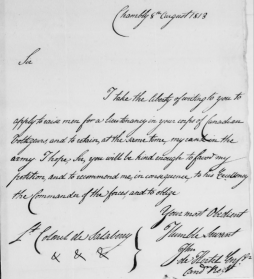 Chambly 8th August 1813
Sir
I take the liberty of writing to you to
apply to raise men for a lieutenancy in your corps of Canadian
Voltigeurs and to retain, at the same time, my rank in the
army I hope, Sir, you will be kind enough to favor my
petition, and to recommend me, in consequence, to his Excellency
the Commander of the forces and to oblige
Your most Obedient
Humble Servant
Lt Colonel de Salaberry
&c &c &c